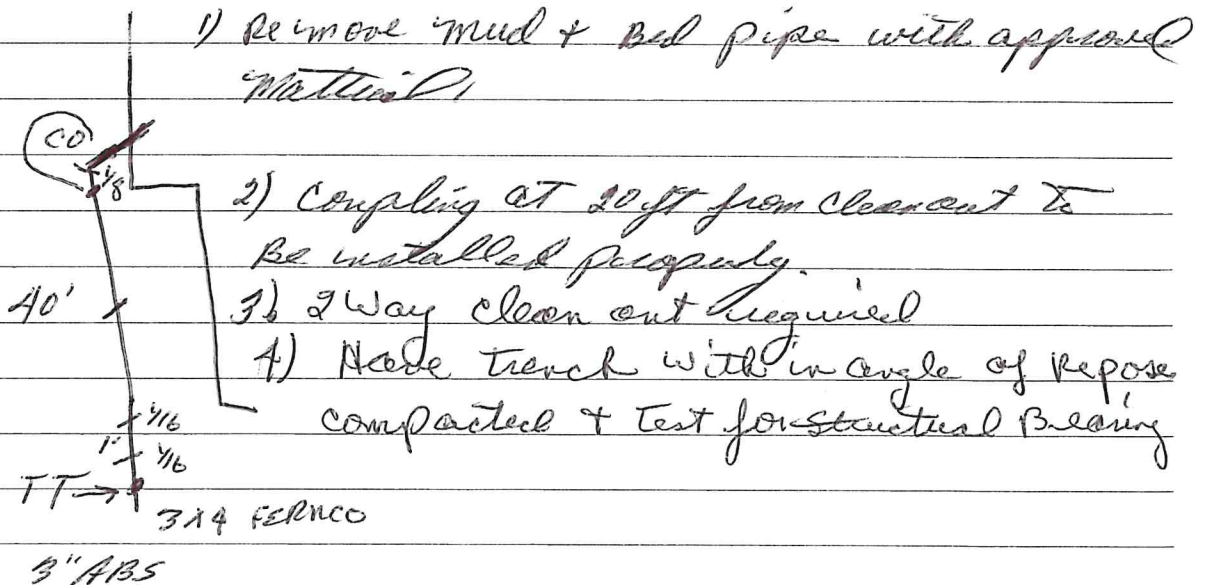 1) Remove mud + Bed pipe with approved
Matterial,
CO
1/8
2) Coupling AT 20 ft from cleanout to
Be installed properly.
40'
3) 2 Way clean out required
4) Have trench with in angle of Repose
compacted + Test for Structural Bearing
1/16
1'
1/16
TT
3x4 FERNCO
3" ABS